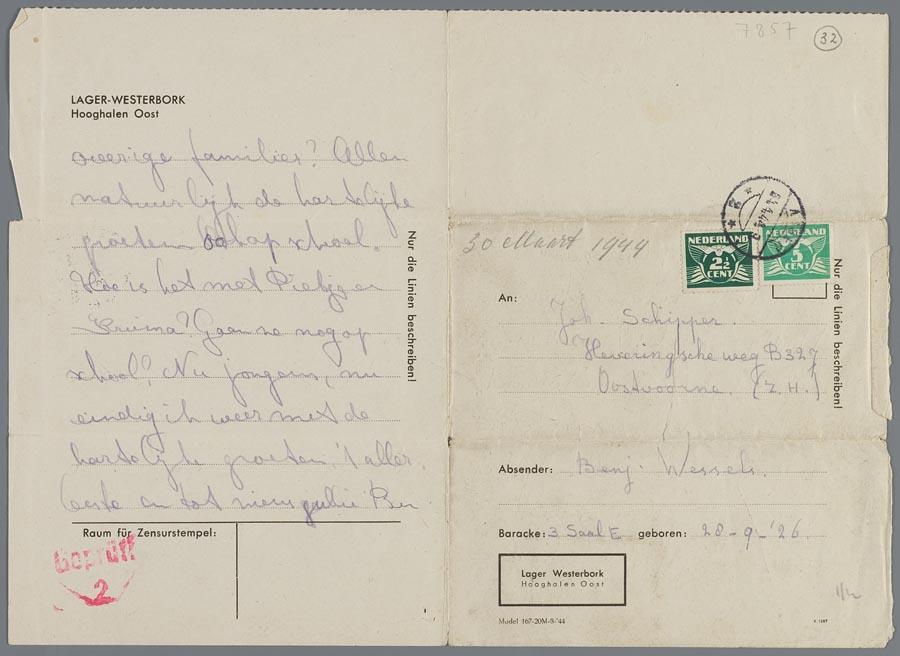 7857
32
LAGER-WESTERBORK
Hooghalen Oost
overige families? Allen
natuurlijk de hartelijke
groeten ook op school.
Hoe is het met Pietje en
Gaan ze nog op
school? Nu jongens, nu
eindig ik weer met de
hartelijke groeten, 't aller-
beste en tot ziens jullie Ben
Nur die Linien beschreiben!
Raum für Zensurstempel:
Geprüft
2
30 Maart 1944
NEDERLAND
2½
CENT
NEDERLAND
5
CENT
Nur die Linien beschreiben!
An:
Joh. Schipper.
Heveringscheweg B327
Oostvoorne. (Z.H.)
Absender: Benj. Wessels.
Baracke: 3 Saal E geboren: 28-9-'26.
Lager Westerbork
Hooghalen Oost
Model 167-20M-8-'44